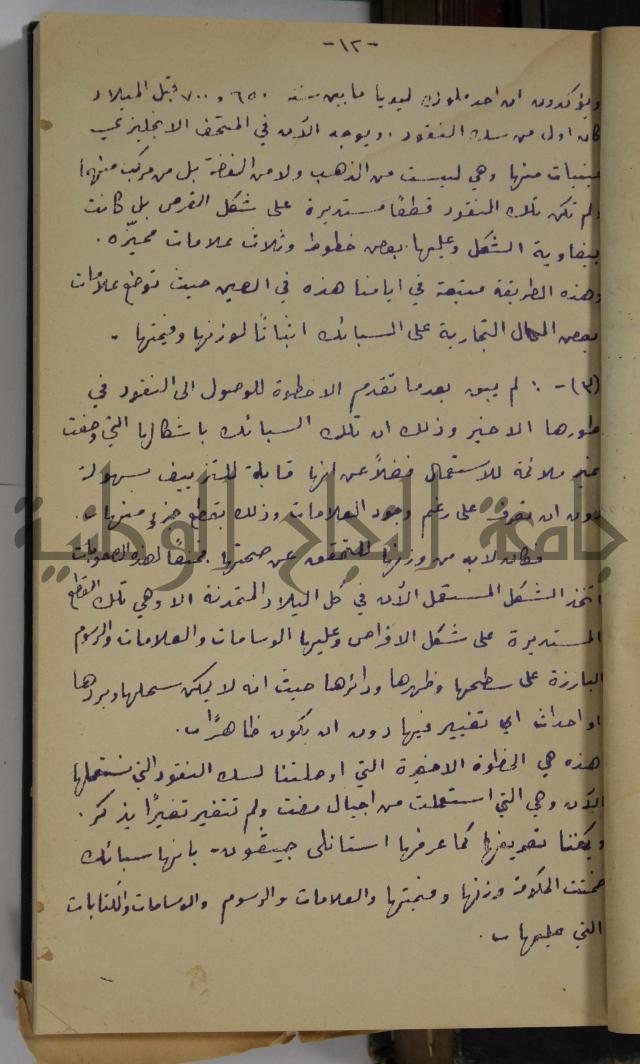 -١٢-
ويؤكدون ان احد ملوك ليديا ما بين سنة ٦٥٠ و ٧٠٠ قبل الميلاد
كان اول من سك النقود . ويوجد الآن في المتحف الانجليزي
عينات منها وهي ليست من الذهب ولا من الفضة بل من مركب منهما
ولم تكن تلك النقود قطعًا مستديرة على شكل القرص بل كانت
بيضاوية الشكل وعليها بعض خطوط وثلاث علامات مميزه .
وهذه الطريقة متبعة في ايامنا هذه في الصين حيث توضع علامات
بعض المحال التجارية على السبائك اثباتًا لوزنها وقيمتها -
(٣) - : لم يبق بعد ما تقدم الا خطوة للوصول الى النقود في
طورها الاخير وذلك ان تلك السبائك باشكالها التي وصفت
غير ملائمة للاستعمال فضلاً عن انها قابلة للتزييف بسهولة
دون ان يعرف على رغم وجود العلامات وذلك بقطع جزء منها .
فكان لابد من وزنها للتحقق عن صحتها . فمنعًا لهذه الصعوبات
اتخذ الشكل المستعمل الآن في كل البلاد المتمدنة الا وهي تلك القطع
المستديرة على شكل الاقراص وعليها الوسامات والعلامات والرسوم
البارزة على سطحها وظهرها ودائرها حيث انه لا يمكن سحلها وبردها
او احداث اي تغيير فيها دون ان يكون ظاهرًا .
هذه هي الخطوة الاخيرة التي اوصلتنا لسك النقود التي نستعملها
الآن وهي التي استعملت من اجيال مضت ولم تتغير تغيرًا يذكر .
ويمكننا تعريفها كما عرفها استانلي جيفون - بانها سبائك
ضمنت الحكومة وزنها وقيمتها والعلامات والرسوم والوسامات والكتابات
التي عليها .
جامعة النجاح الوطنية